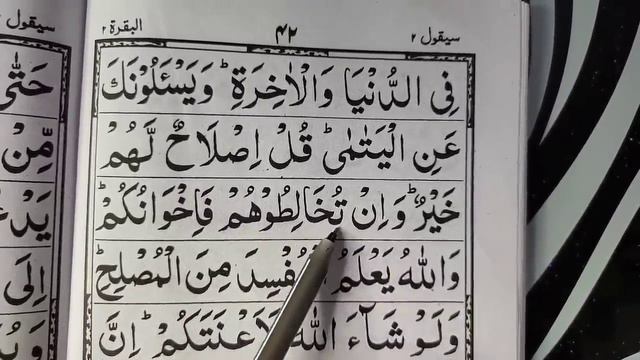 سيقول ٢ ٤٢ البقرة ٢
فِى الدُّنْيَا وَالْاٰخِرَةِ ؕ وَيَسْـَٔلُوْنَكَ
عَنِ الْيَتٰمٰى ؕ قُلْ اِصْلَاحٌ لَّهُمْ
خَيْرٌ ؕ وَاِنْ تُخَالِطُوْهُمْ فَاِخْوَانُكُمْ ؕ
وَاللّٰهُ يَعْلَمُ مِنَ الْمُصْلِحِ ؕ
وَلَوْ شَآءَ اللّٰهُ لَاَعْنَتَكُمْ ؕ اِنَّ
حَتّٰى
مِّنْ
اِلَى